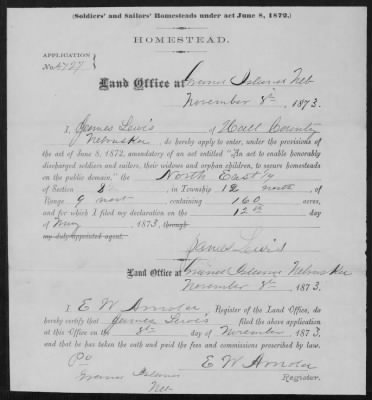 (Soldiers' and Sailors' Homesteads under act June 8, 1872.)
HOMESTEAD.
APPLICATION
No. 4727
Land Office at Grand Island Neb
November 8th, 1873.
I, James Lewis, of Hall County
Nebraska, do hereby apply to enter, under the provisions of
the act of June 8, 1872, amendatory of an act entitled "An act to enable honorably
discharged soldiers and sailors, their widows and orphan children, to secure homesteads
on the public domain," the North East 1/4
of Section 8, in Township 12 north, of
Range 9 west, containing 160 acres,
and for which I filed my declaration on the 12th day
of May, 1873, through
my duly appointed agent.
James Lewis
Land Office at Grand Island Nebraska
November 8th, 1873.
I, E W Arnold, Register of the Land Office, do
hereby certify that James Lewis filed the above application
at this Office on the 8th day of November 1873,
and that he has taken the oath and paid the fees and commissions prescribed by law.
PO
Grand Island
Neb
E W Arnold
Register.